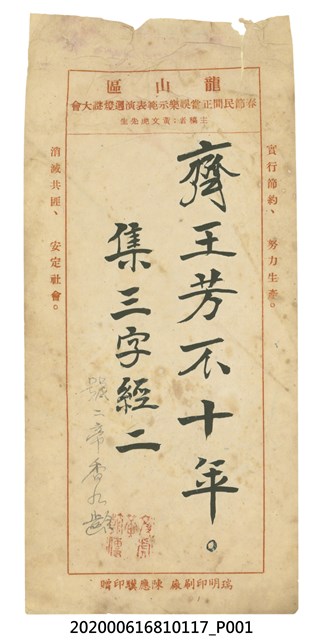 龍山區
春節民間正當娛樂示範表演週燈謎大會
主稿者:黃文虎先生
實行節約、努力生產。
齊王芳不十年。
集三字經二
號二帝香九齡
消滅共匪、安定社會。
瑞明印刷廠 陳應騏印贈
202000616810117_P001